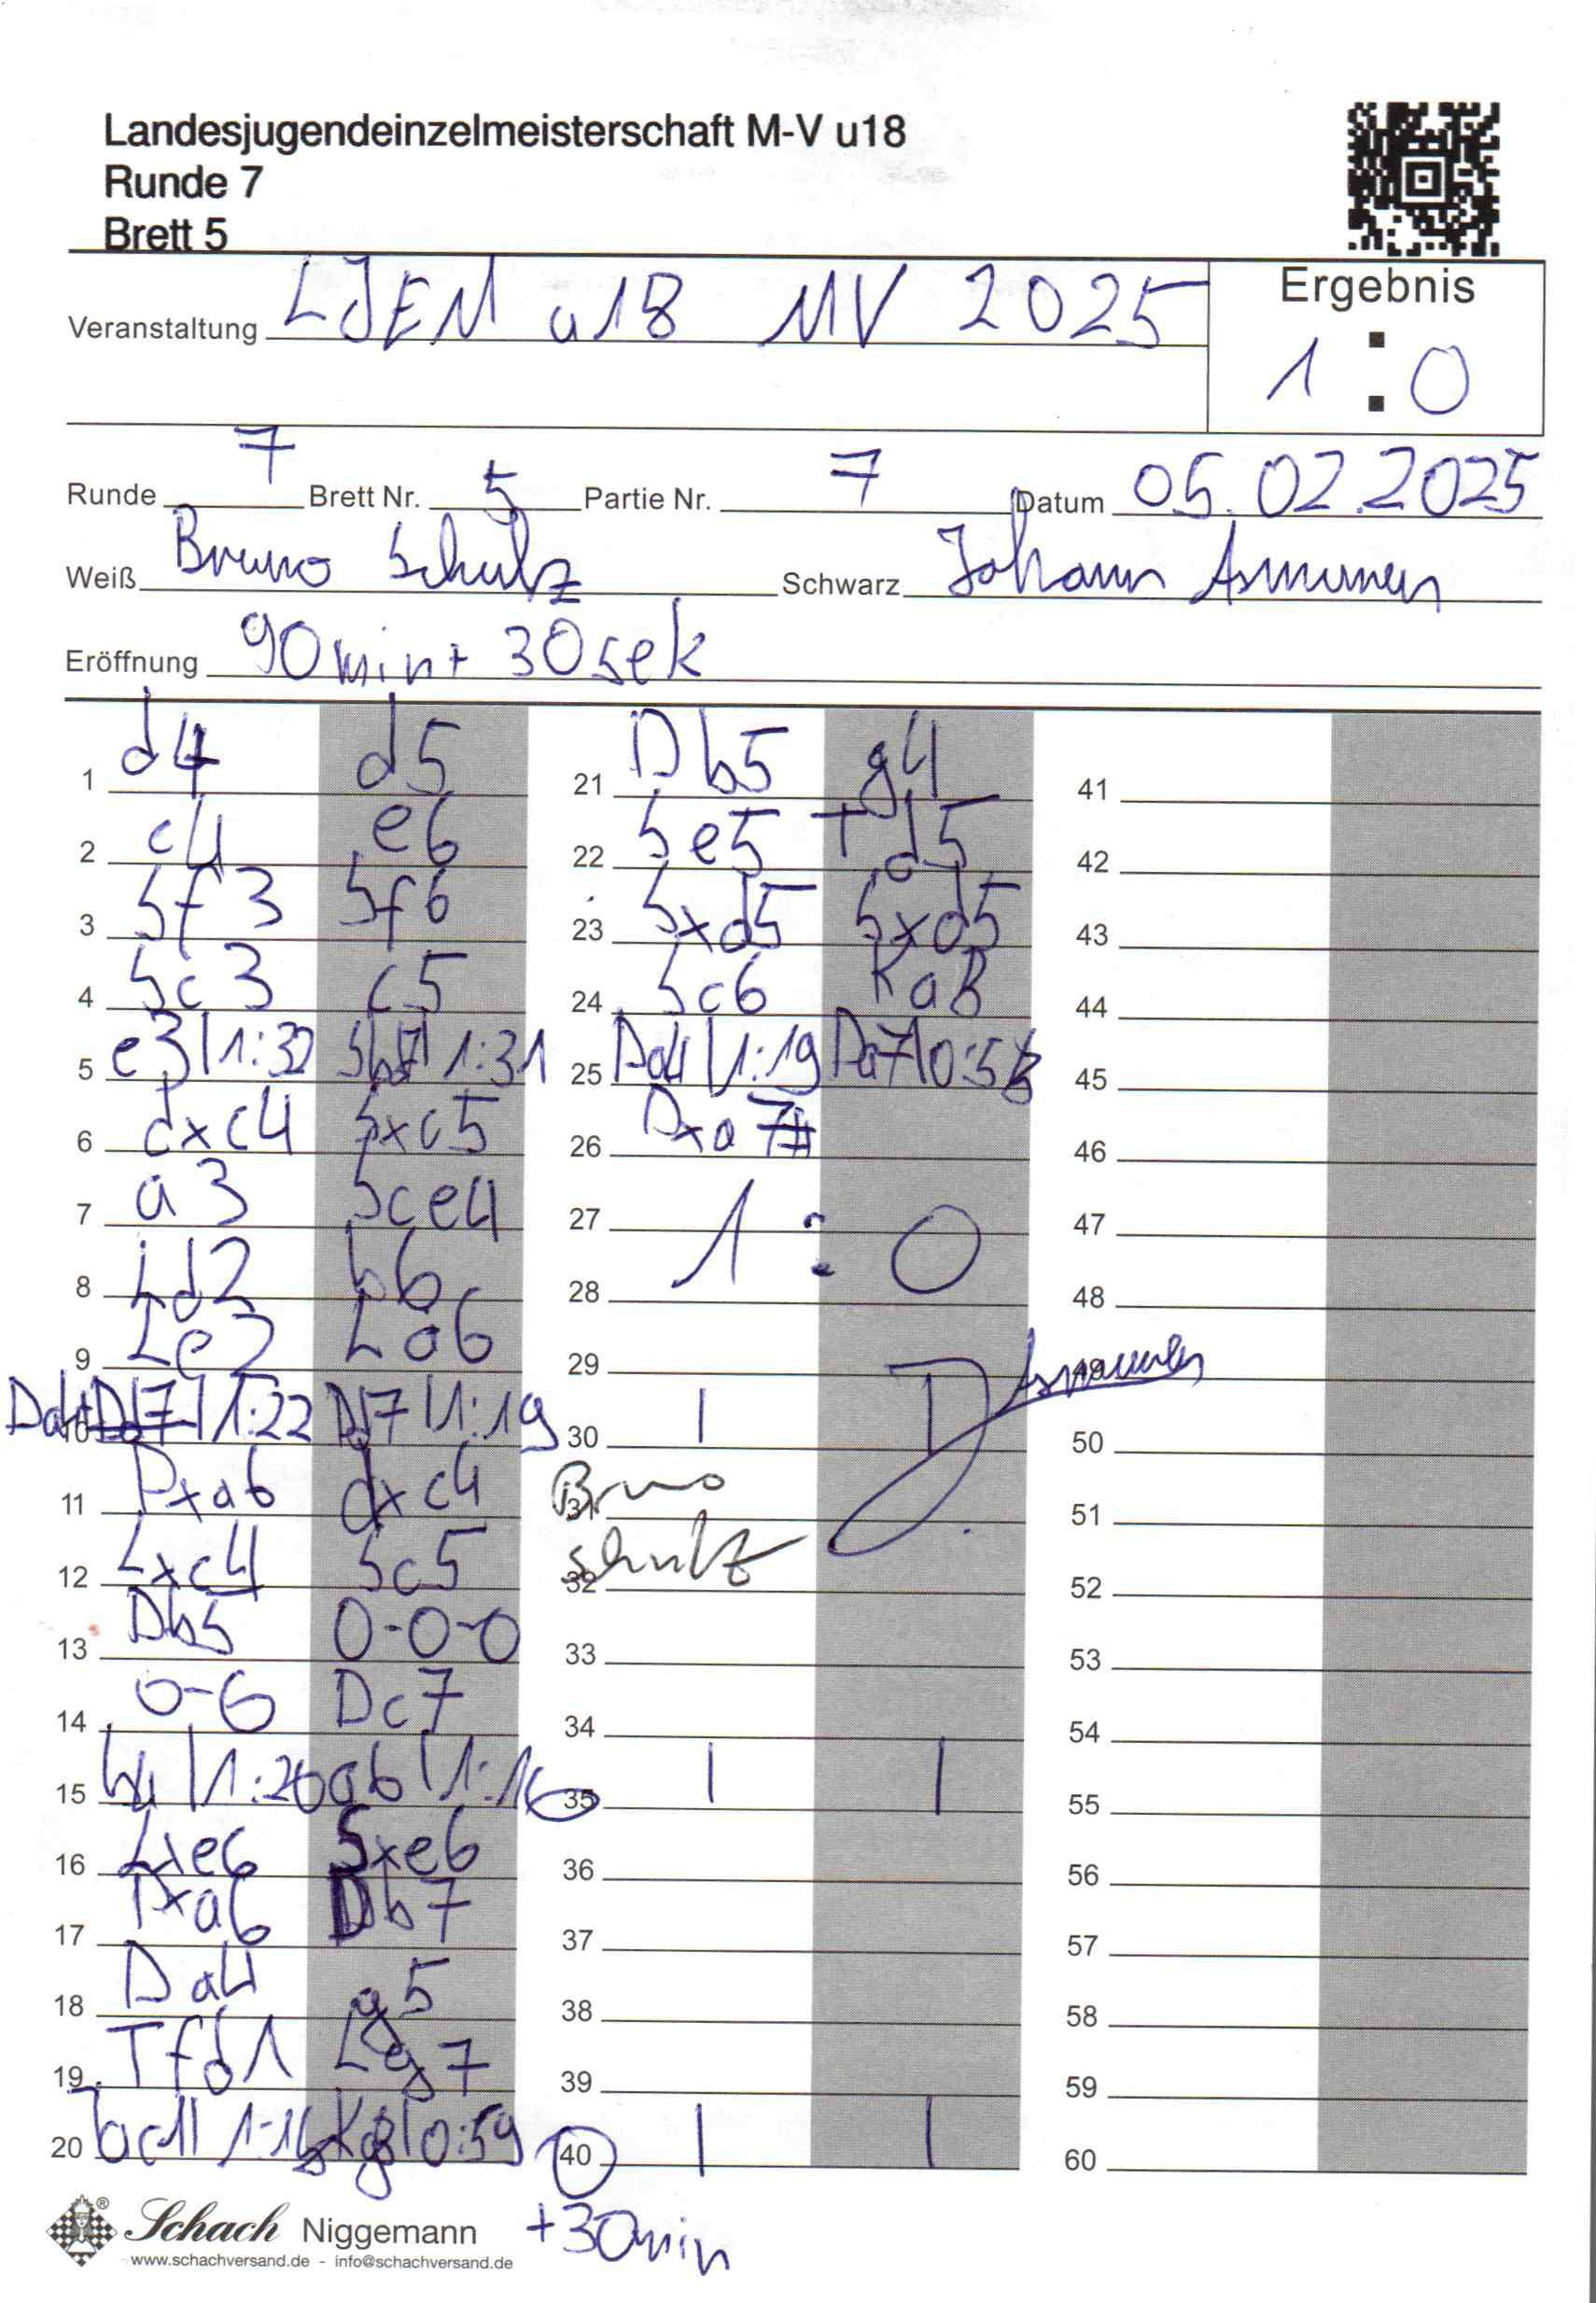 Landesjugendeinzelmeisterschaft M-V u18
Runde 7
Brett 5
Veranstaltung LJEM u18 MV 2025
Ergebnis
1 : 0
Runde 7 Brett Nr. 5 Partie Nr. 7 Datum 05.02.2025
Weiß Bruno Schulz Schwarz Johann Asmunen
Eröffnung 90min+ 30sek
1 d4 d5
2 c4 e6
3 Sf3 Sf6
4 Sc3 c5
5 e3|1:32 Sbd7|1:31
6 dxc4 Sxc5
7 a3 Sce4
8 Ld2 b6
9 Le3 La6
10 Da4+ Dd7|1:22 Dd7|1:19
11 Dxa6 dxc4
12 Lxc4 Sc5
13 Db5 0-0-0
14 0-0 Dc7
15 b4|1:20 a6|1:16
16 Lxe6 Sxe6
17 Dxa6 Db7
18 Da4 g5
19 Tfd1 Lg7
20 Tac1|1:16 Kb8|0:59
21 Db5 g4
22 Se5 Td5
23 Sxd5 Sxd5
24 Sc6 Ka8
25 Da4|1:19 Da7|0:58
26 Dxa7#
27 1 : 0
28
29
30
31 Bruno
32 Schulz
33
34
35
36
37
38
39
40
+30min
41
42
43
44
45
46
47
48
49
50
51
52
53
54
55
56
57
58
59
60
Schach Niggemann
www.schachversand.de - info@schachversand.de